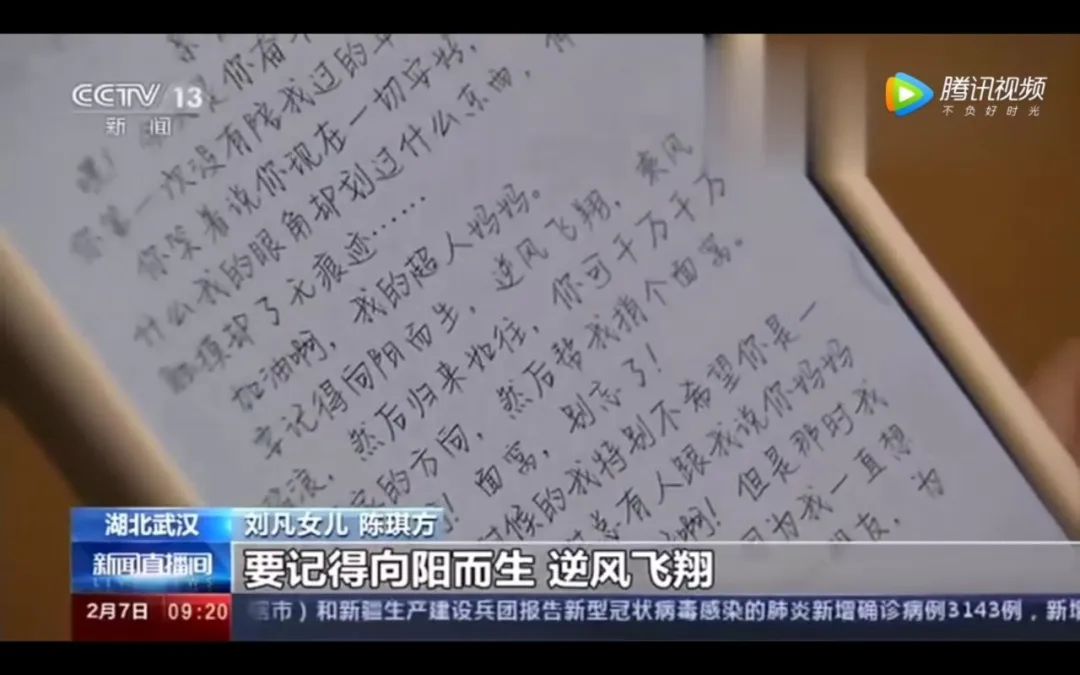 CCTV 13
新闻
腾讯视频
不负好时光
你第一次没有陪我过的年
你笑着说你现在一切安好,
什么我的眼角却划过什么东西,
却了无痕迹……
加油啊,我的超人妈妈。
要记得向阳而生,逆风飞翔,乘风
浪,然后归来如往,你可千万千万
家的方向,然后帮我捎个面窝。
面窝,别忘了!
时候的我特别不希望你是一
有人跟我说你妈妈
啊!但是那时我
因为我一直想
朋友,为
湖北武汉
刘凡女儿 陈琪方
新闻直播间
要记得向阳而生 逆风飞翔
2月7日 09:20
辖市)和新疆生产建设兵团报告新型冠状病毒感染的肺炎新增确诊病例3143例,新增